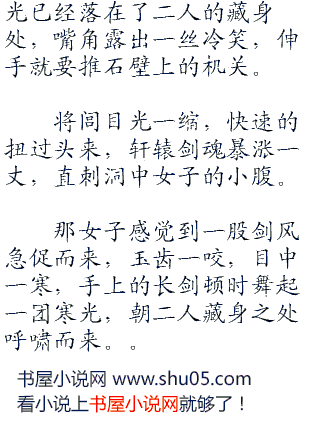 光已经落在了二人的藏身
处，嘴角露出一丝冷笑，伸
手就要推石壁上的机关。
将闾目光一缩，快速的
扭过头来，轩辕剑魂暴涨一
丈，直刺洞中女子的小腹。
那女子感觉到一股剑风
急促而来，玉齿一咬，目中
一寒，手上的长剑顿时舞起
一团寒光，朝二人藏身之处
呼啸而来。。
书屋小说网 www.shu05.com
看小说上书屋小说网就够了！